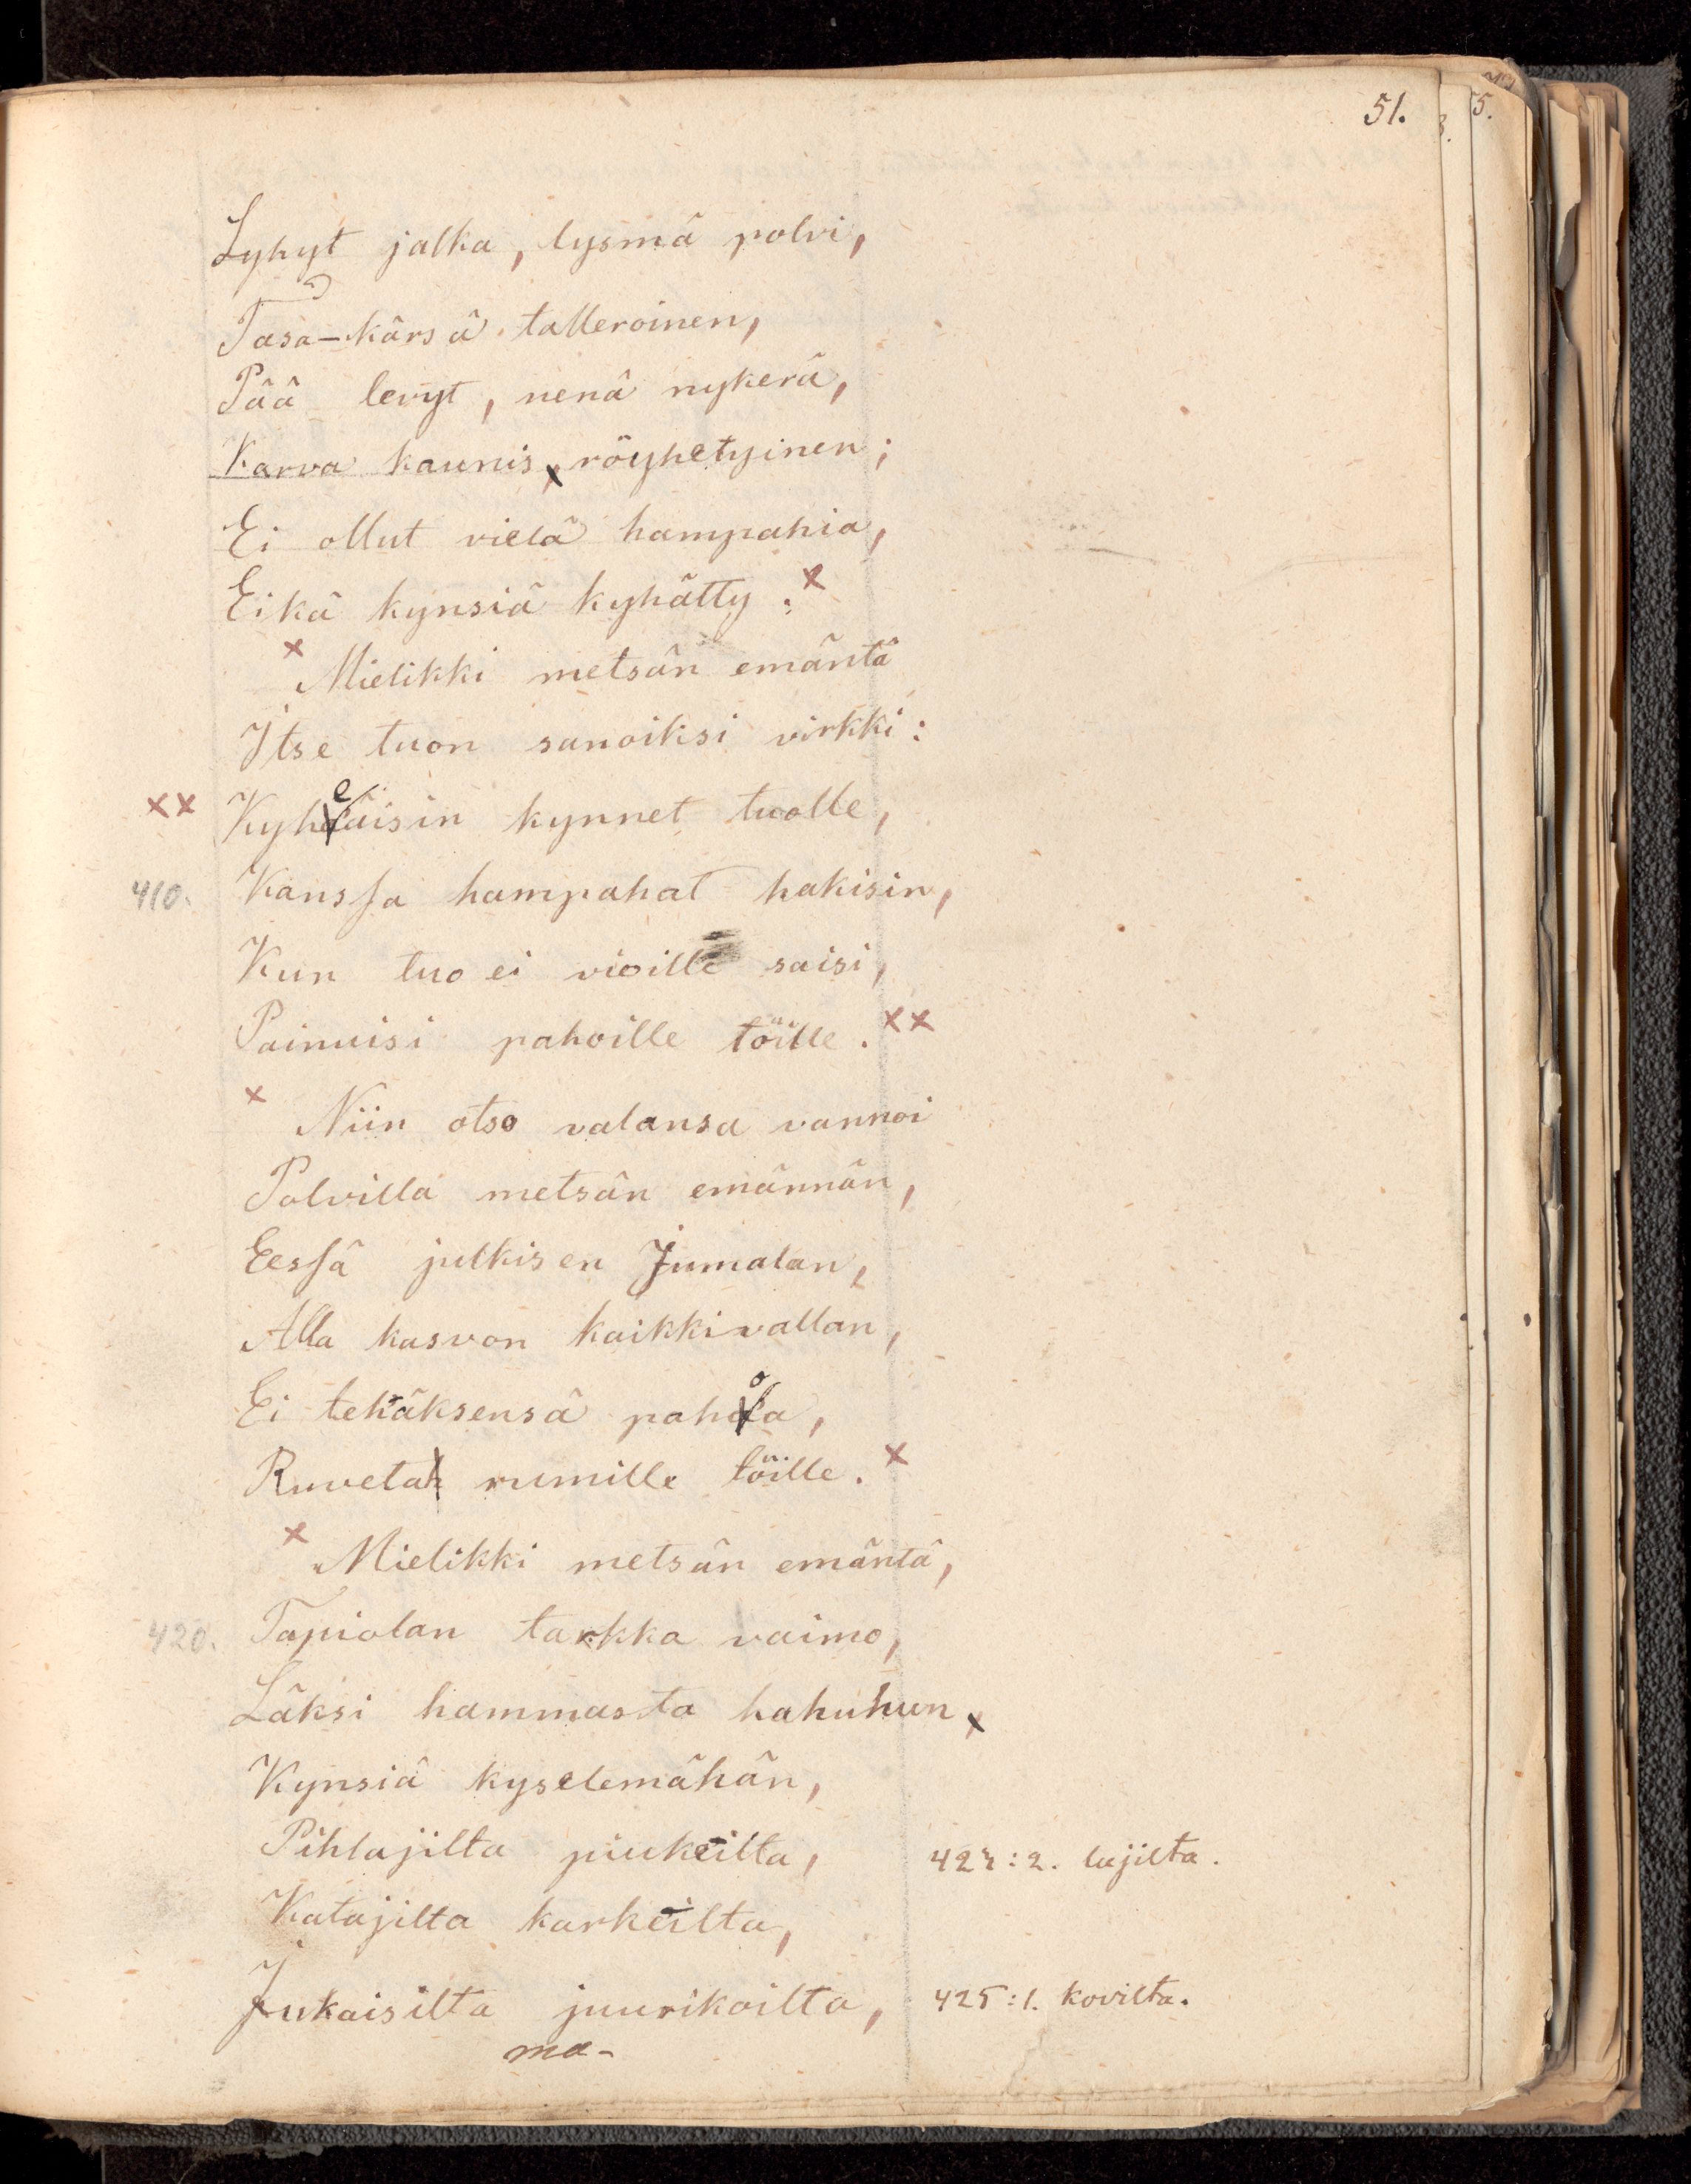 51.
Lyhyt jalka, lysmä polvi,
Tasa-kärsä talleroinen,
Pää levyt, nenä nykerä,
Karva kaunis röyhetyinen;
Ei ollut vielä hampahia,
Eikä kynsiä kyhätty. x
x Mielikki metsän emäntä
Itse tuon sanoiksi virkki:
xx Kyheäisin kynnet tuolle,
410. Kanssa hampahat hakisin,
Kun tuo ei vioille saisi,
Painuisi pahoille töille. xx
x Niin otso valansa vannoi
Polvilla metsän emännän,
Eessä julkisen Jumalan,
Alla kasvon kaikkivallan,
Ei tehäksensä pahoa,
Ruveta rumille töille. x
x Mielikki metsän emäntä,
420. Tapiolan tarkka vaimo,
Läksi hammasta hahuhun
Kynsiä kyselemähän,
Pihlajilta piukeilta, 423:2. lujilta.
Katajilta karkeilta,
Jukaisilta juurikoilta, 425:1. kovilta.
ma-